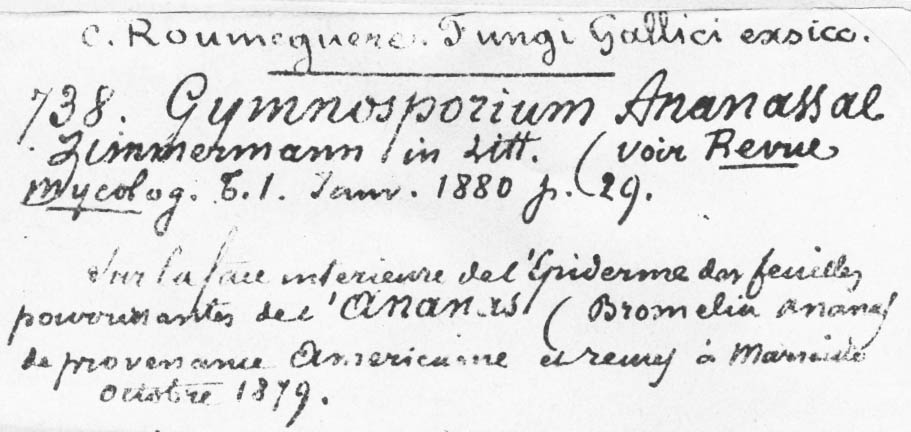 C. Roumeguere. Fungi Gallici exsicc.
738. Gymnosporium Ananassae
Zimmermann in Litt. (voir Revue
mycolog. T. 1. Janv. 1880 p. 29.
Sur la face interieure de l'Epiderme des feuilles
pourrissantes de l'Ananas (Bromelia Ananas
de provenance Americaine et à Marseille
Octobre 1879.